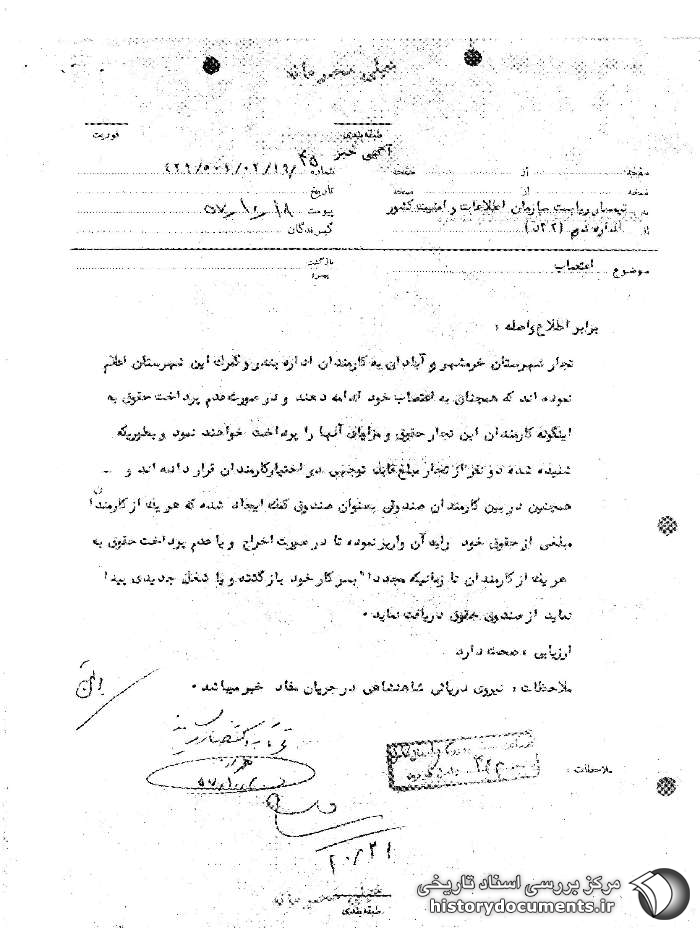 خیلی محرمانه
طبقه‌بندی
فوریت
آگهی خبر
صفحه از صفحه
شماره
نسخه از نسخه
تاریخ
به تیمسار ریاست سازمان اطلاعات و امنیت کشور
پیوست
از
گیرندگان
موضوع اعتصاب
بازگشت
پیرو
برابر اطلاع واصله :
تجار شهرستان خرمشهر و آبادان به کارمندان اداره بندر و گمرک این شهرستان اعلام
نموده اند که همچنان به اعتصاب خود ادامه دهند و در صورت عدم پرداخت حقوق به
اینگونه کارمندان این تجار حقوق و مزایای آنها را پرداخت خواهند نمود و بطوریکه
شنیده شده دو نفر از تجار مبلغ قابل توجهی در اختیار کارمندان قرار داده اند و
همچنین در بین کارمندان صندوقی بعنوان صندوق کمک ایجاد شده که هر یک از کارمندان
مبلغی از حقوق خود را به آن واریز نموده تا در صورت اخراج و یا عدم پرداخت حقوق به
هر یک از کارمندان تا زمانیکه مجددا" بسر کار خود بازگشته و یا شغل جدیدی پیدا
نماید از صندوق حقوق دریافت نماید .
ارزیابی : صحت دارد
ملاحظات : نیروی دریائی شاهنشاهی در جریان مفاد خبر میباشد .
ملاحظات :
۲۰/۲۱
خیلی محرمانه
طبقه‌بندی
مرکز بررسی اسناد تاریخی
historydocuments.ir